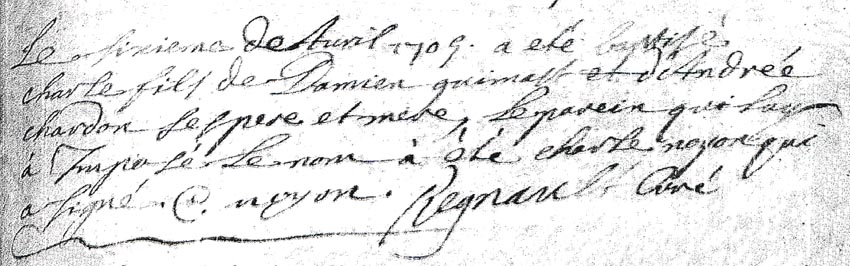 Le sixieme de Avril 1709. a eté baptisé
charle fils de Damien guimast et d'Andrée
chardon ses pere et mere, Le parein qui luy
à Imposé Le nom à été charle noyon qui
a signé. C. noyon. Regnault Curé